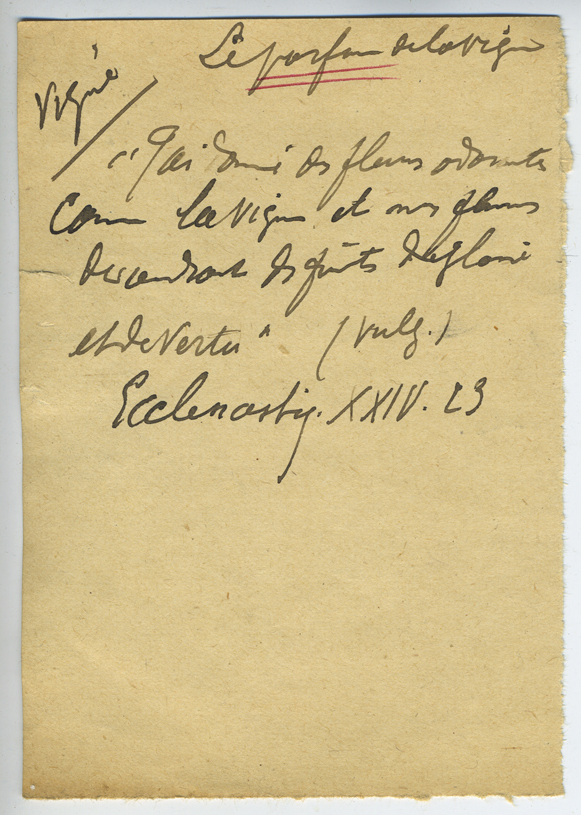 Le parfum de la vigne
Vigne
"J'ai donné des fleurs odorantes
Comme la vigne et mes fleurs
deviendront des fruits de gloire
et de vertu" (Vulg.)
Ecclesiastiq. XXIV. 23